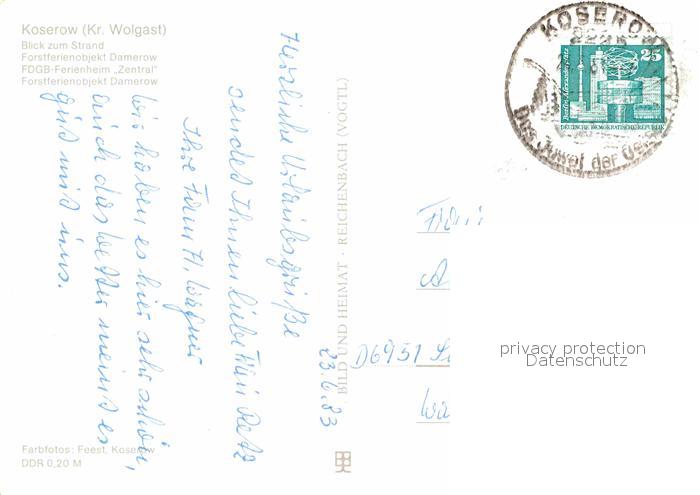 Koserow (Kr. Wolgast)
Blick zum Strand
Forstferienobjekt Damerow
FDGB-Ferienheim „Zentral"
Forstferienobjekt Damerow
Herzliche Urlaubsgrüße
sendet Ihnen liebe Frau Retz
Ihre Fam H. Wagner
Wir haben es hier sehr schön,
auch das Wetter meint es
gut mit uns.
23.6.83
BILD UND HEIMAT · REICHENBACH (VOGTL)
KOSEROW
2225
Das Juwel der
25
Berlin, Alexanderplatz
DEUTSCHE DEMOKRATISCHE REPUBLIK
D6951
privacy protection
Datenschutz
Farbfotos: Feest, Koserow
DDR 0,20 M